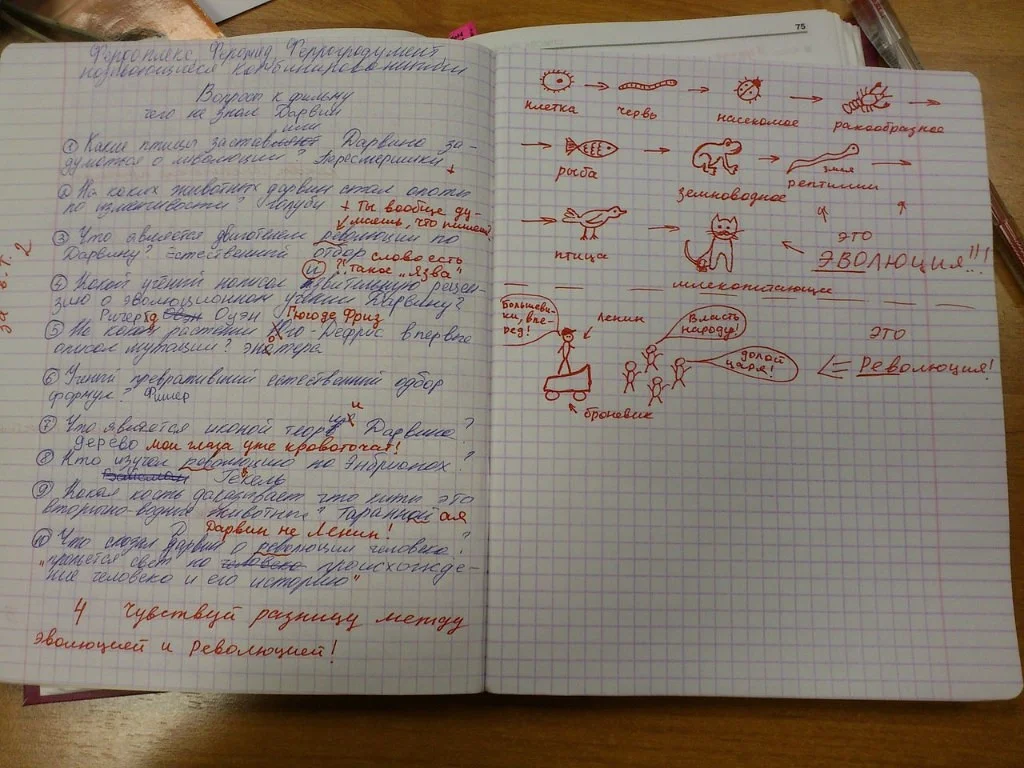 75
Вопросы к фильму
чего не знал Дарвин
или
① Какие птицы заставляют Дарвина за-
думаться о революции? Пересмешники
+
② На каких животных дарвин ставил опыты
по изменчивости? голуби + ты вообще ду-
маешь, что пишешь
③ Что является двигателем революции по
Дарвину? Естественный отбор слово есть
и ?! такое "язва"
④ Какой учёный написал рецен-
зию о эволюционном учении Дарвину?
Ричард Оуэн Гюгоде Фриз
⑤ На каком растении Гюго-Дефрис впервые
описал мутации? энотера
⑥ Учений превративший естественный одбор
формук? Фишер
и
⑦ Что является иконой теор Дарвина?
дерево мои глаза уже кровоточат!
⑧ Кто изучал революцию по Энбрионах?
Гекель
⑨ Какая кость даказывает что киты это
вторично-водные животные? Таранной ая
Д Дарвин не Ленин!
⑩ Что сказал дарвин о революции человека?
"прольётся свет на человека происхожде-
ние человека и его историю"
4 Чувствуй разницу между
эволюцией и революцией!
за в.т. 2
клетка червь насекомое ракообразное
рыба земноводное змея
рептилии
птица это
ЭВОЛЮЦИЯ!!!
млекопитающие
Большеви-
ки, впе-
рёд!
Ленин
Власть
народу!
долой
царя!
броневик
это
Революция!